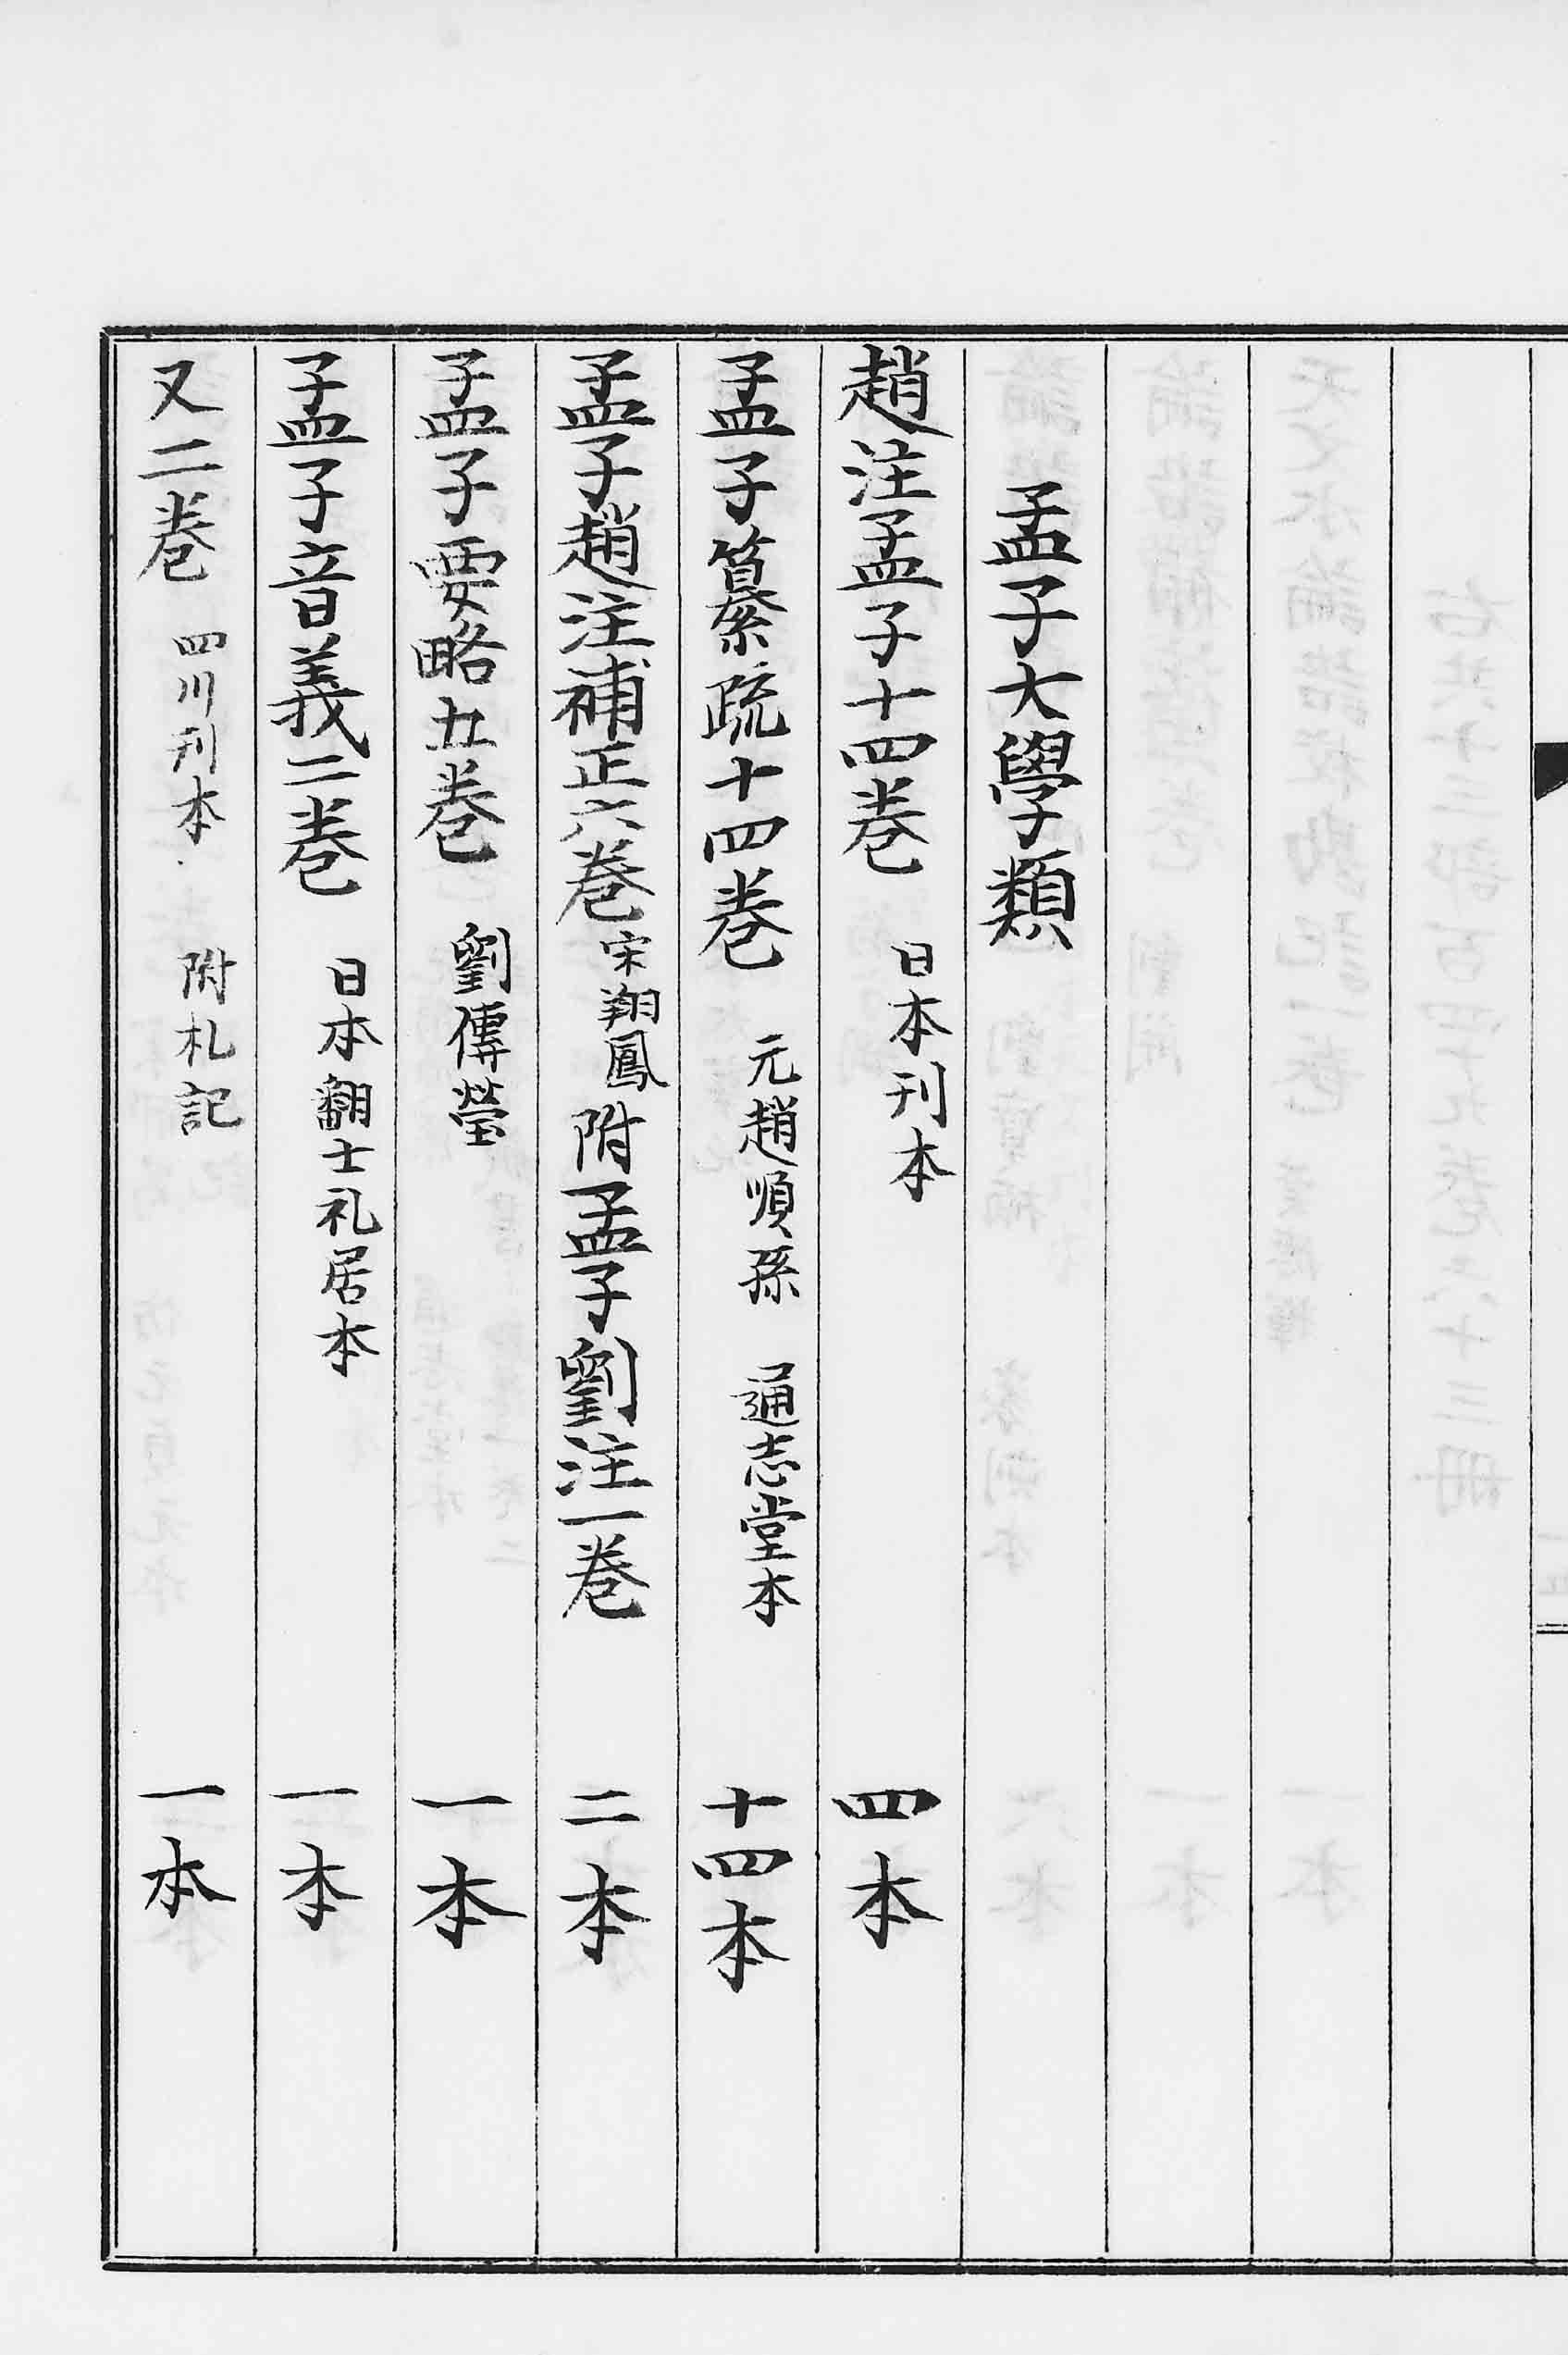 孟子大學類
趙注孟子十四卷 日本刊本 四本
孟子纂疏十四卷 元趙順孫 通志堂本 十四本
孟子趙注補正六卷 宋翔鳳 附孟子劉注一卷 二本
孟子要略五卷 劉傳瑩 一本
孟子音義二卷 日本翻士礼居本 一本
又二卷 四川刊本 附札記 一本